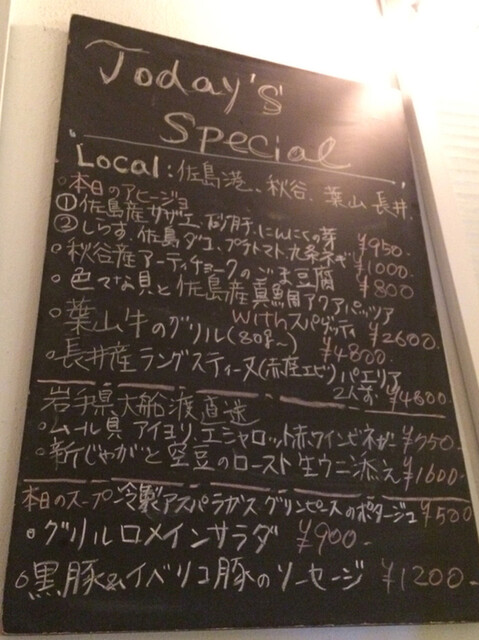 Today's
Special
Local:佐島港、秋谷、葉山、長井
・本日のアヒージョ
①佐島産サザエ、砂肝、にんにくの芽 ¥950-
②しらす、佐島ダコ、プチトマト、九条ネギ ¥1000-
・秋谷産アーティチョークのごま豆腐 ¥800
・色々な貝と佐島産真鯛アクアパッツァ
withスパゲッティ ¥2600-
・葉山牛のグリル(80g〜) ¥4800-
・長井産ラングスティーヌ(赤座エビ)パエリア
2人前 ¥4800-
岩手県大船渡直送
・ムール貝 アイヨリ、エシャロット赤ワインビネガー ¥750-
・新じゃがと空豆のロースト 生ウニ添え ¥1600-
本日のスープ 冷製アスパラガス グリンピースのポタージュ ¥500
・グリルロメインサラダ ¥900-
・黒豚&イベリコ豚のソーセージ ¥1200-